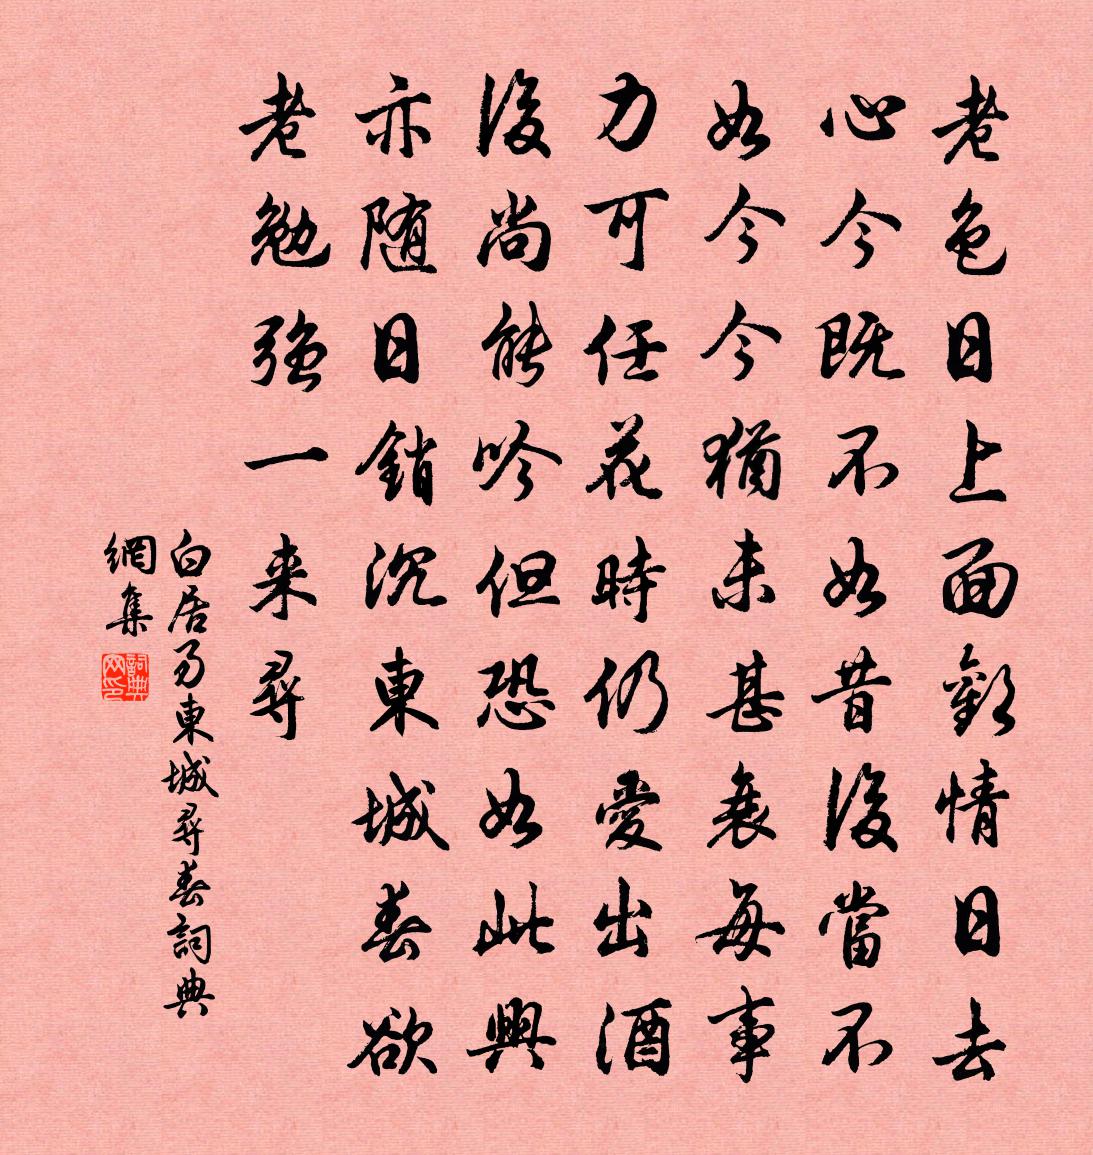 老色日上面歡情日去
心今既不如昔後當不
如今今猶未甚衰每事
力可任花時仍愛出酒
後尚能吟但恐如此興
亦随日銷沉東城春欲
老勉强一来尋
白居易東城尋春詞典
網集
詞典
网印